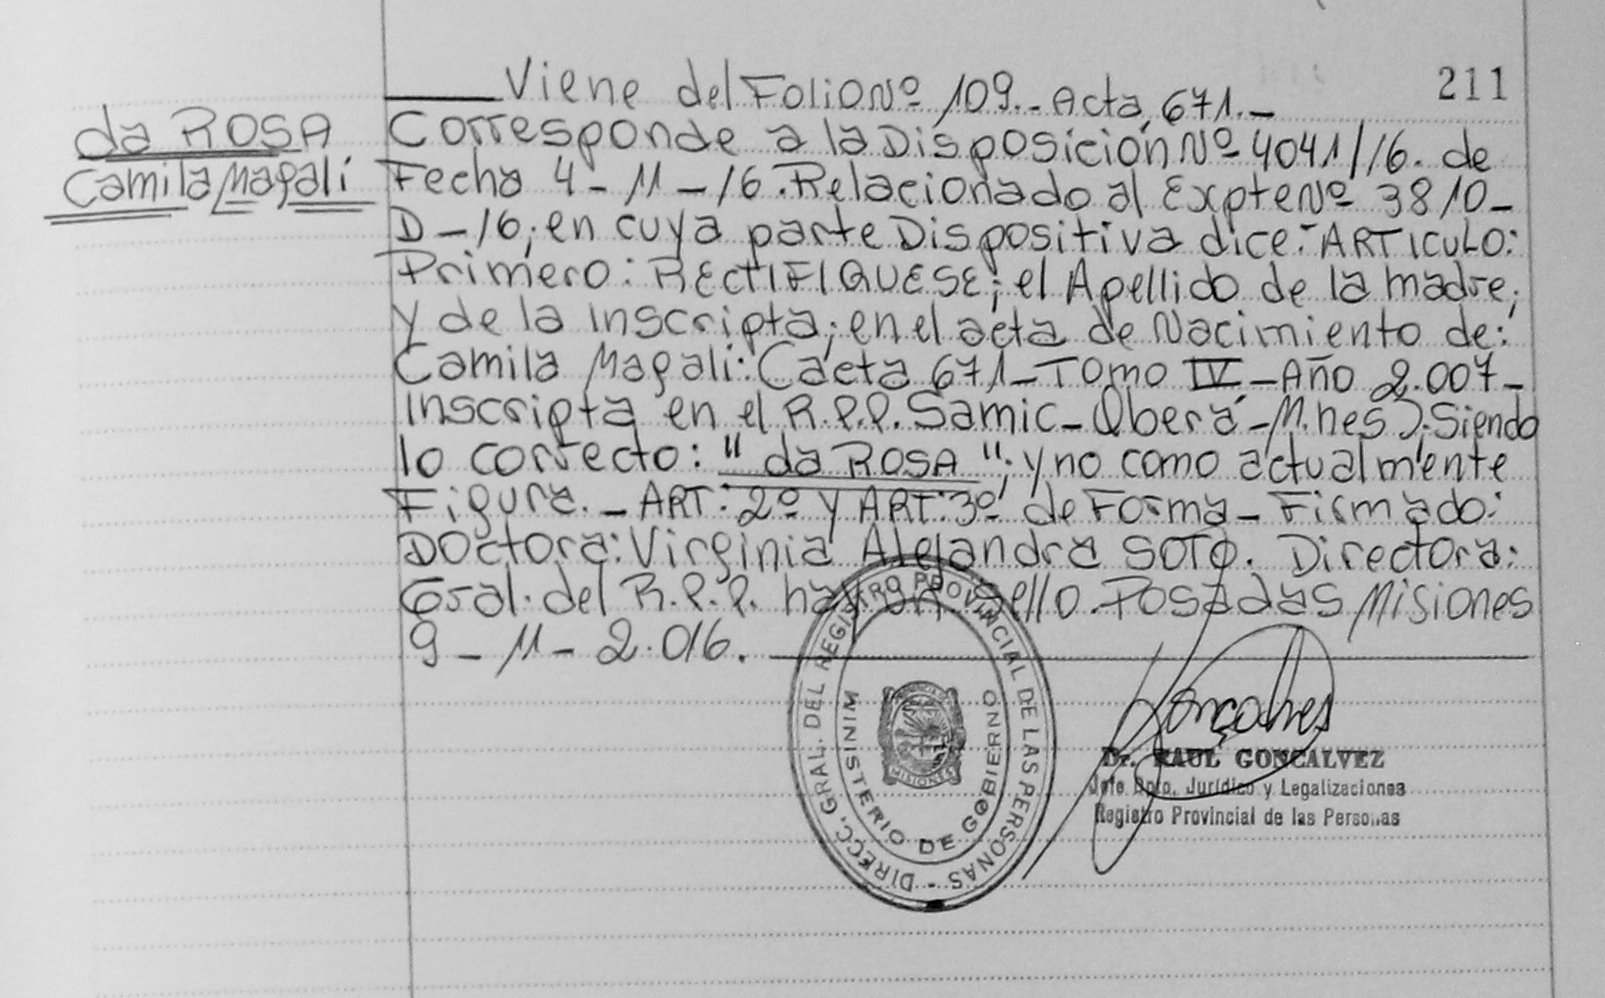 211
Viene del Folio Nº 109.- Acta, 671.-
da ROSA
Camila Magalí
Corresponde a la Disposición Nº 4041/16. de
Fecha 4-11-16. Relacionado al Expte Nº 3810-
D-16; en cuya parte Dispositiva dice:- ARTICULO:
Primero: RECTIFIQUESE; el Apellido de la madre;
y de la inscripta; en el acta de Nacimiento de:
Camila Magalí: (acta 671- Tomo IV - Año 2.007-
inscripta en el R.P.P. Samic - Oberá - M.nes). Siendo
lo correcto: " da ROSA "; y no como actualmente
Figura. - ART: 2º y ART: 3º de Forma - Firmado:
Doctora: Virginia Alejandra SOTO. Directora:
Gral. del R.P.P. hay un sello. Posadas Misiones
9 - 11 - 2.016.
DIRECC. GRAL. DEL REGISTRO PROVINCIAL DE LAS PERSONAS -
MINISTERIO DE GOBIERNO
PROVINCIA DE
MISIONES
Goncalves
Dr. RAUL GONCALVEZ
Jefe Dpto. Jurídico y Legalizaciones
Registro Provincial de las Personas